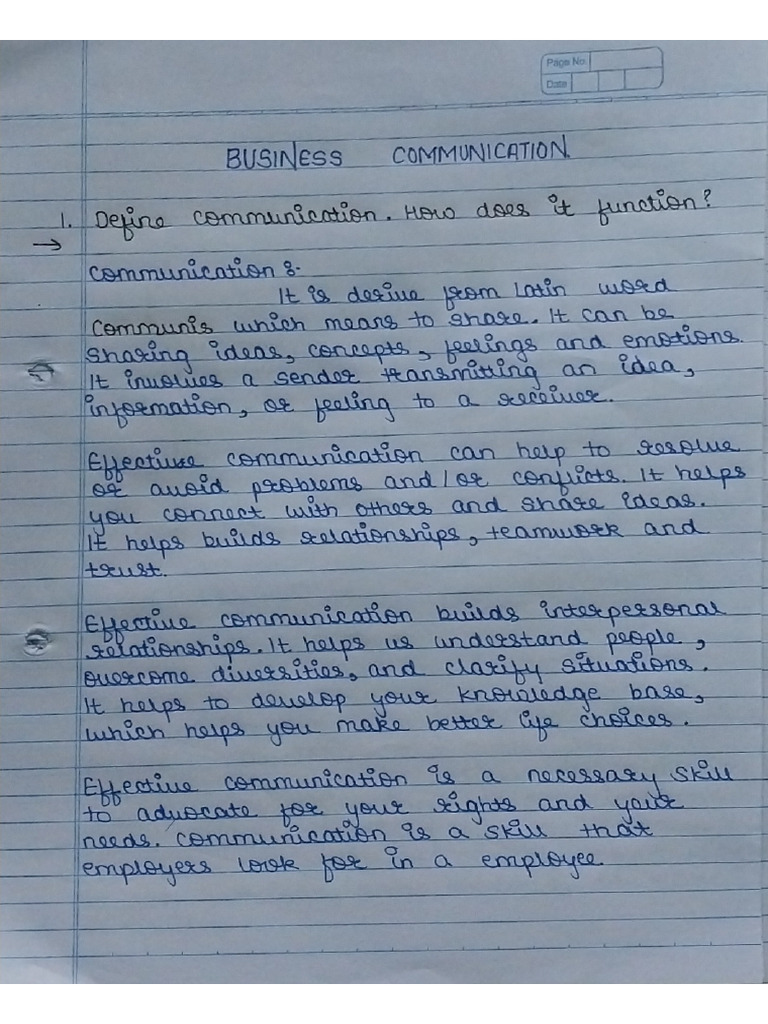 Page No.
Date
BUSINESS COMMUNICATION.
1. Define communication. How does it function?
→
Communication :-
It is derive from Latin word
Communis which means to share. It can be
sharing ideas, concepts, feelings and emotions.
It involves a sender transmitting an idea,
information, or feeling to a receiver.
Effective communication can help to resolve
or avoid problems and/or conflicts. It helps
you connect with others and share ideas.
It helps builds relationships, teamwork and
trust.
Effective communication builds interpersonal
relationships. It helps us understand people,
overcome diversities, and clarify situations.
It helps to develop your knowledge base,
which helps you make better life choices.
Effective communication is a necessary skill
to advocate for your rights and your
needs. Communication is a skill that
employers look for in a employee.